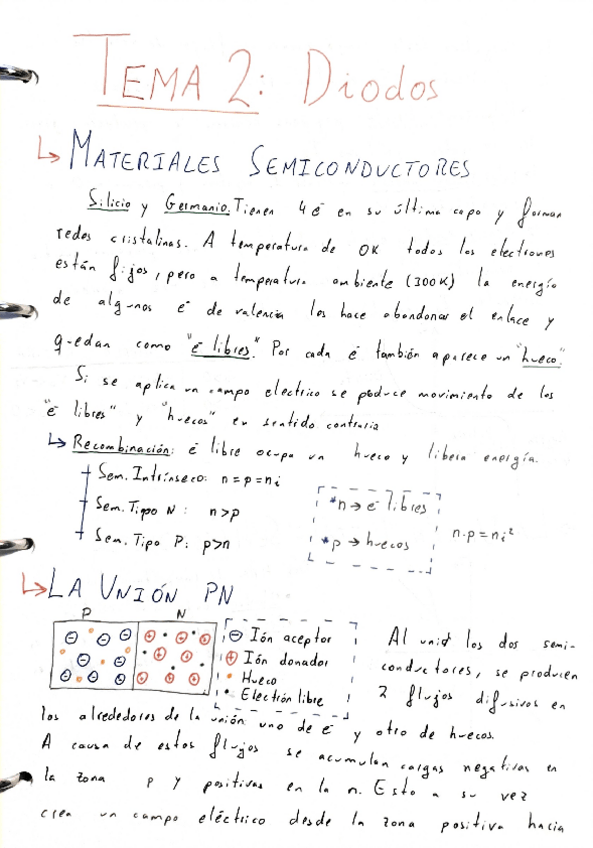 TEMA 2: Diodos
↳ MATERIALES SEMICONDUCTORES
Silicio y Germanio. Tienen 4 e⁻ en su última capa y forman
redes cristalinas. A temperatura de 0K todos los electrones
están fijos, pero a temperatura ambiente (300K) la energía
de algunos e⁻ de valencia los hace abandonar el enlace y
quedan como "e⁻ libres". Por cada e⁻ también aparece un "hueco".
Si se aplica un campo electrico se produce movimiento de los
"e⁻ libres" y "huecos" en sentido contrario
↳ Recombinación: e⁻ libre ocupa un hueco y libera energía.
Sem. Intrínseco: n=p=nᵢ
Sem. Tipo N: n>p
Sem. Tipo P: p>n
*n → e⁻ libres
*p → huecos
n·p=nᵢ²
↳ LA UNIÓN PN
P N
⊖ Ión aceptor
⊕ Ión donador
• Hueco
• Electrón libre
Al unir los dos semi-
conductores, se producen
2 flujos difusivos en
los alrededores de la unión: uno de e⁻ y otro de huecos.
A causa de estos flujos se acumulan cargas negativas en
la zona p y positivas en la n. Esto a su vez
crea un campo eléctrico desde la zona positiva hacia